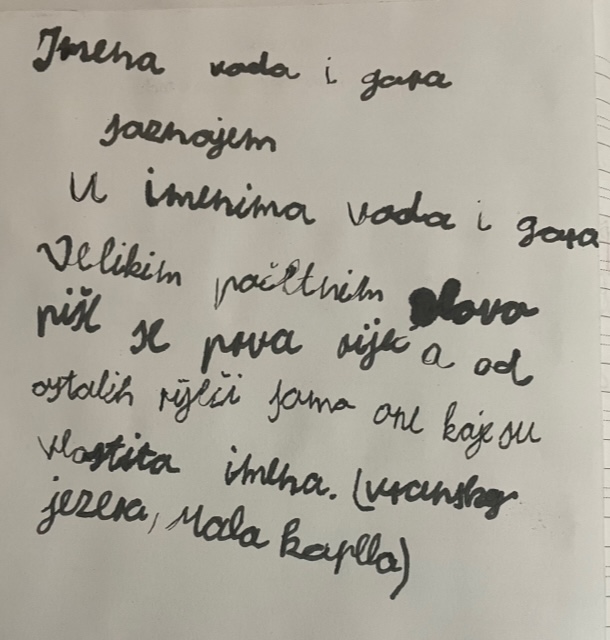 Imena voda i gora
saznajem
U imenima voda i gora
Velikim početnim slova
piše se prva riječ a od
ostalih riječi samo one koje su
vlastita imena. (vransko
jezero, Mala kapela)